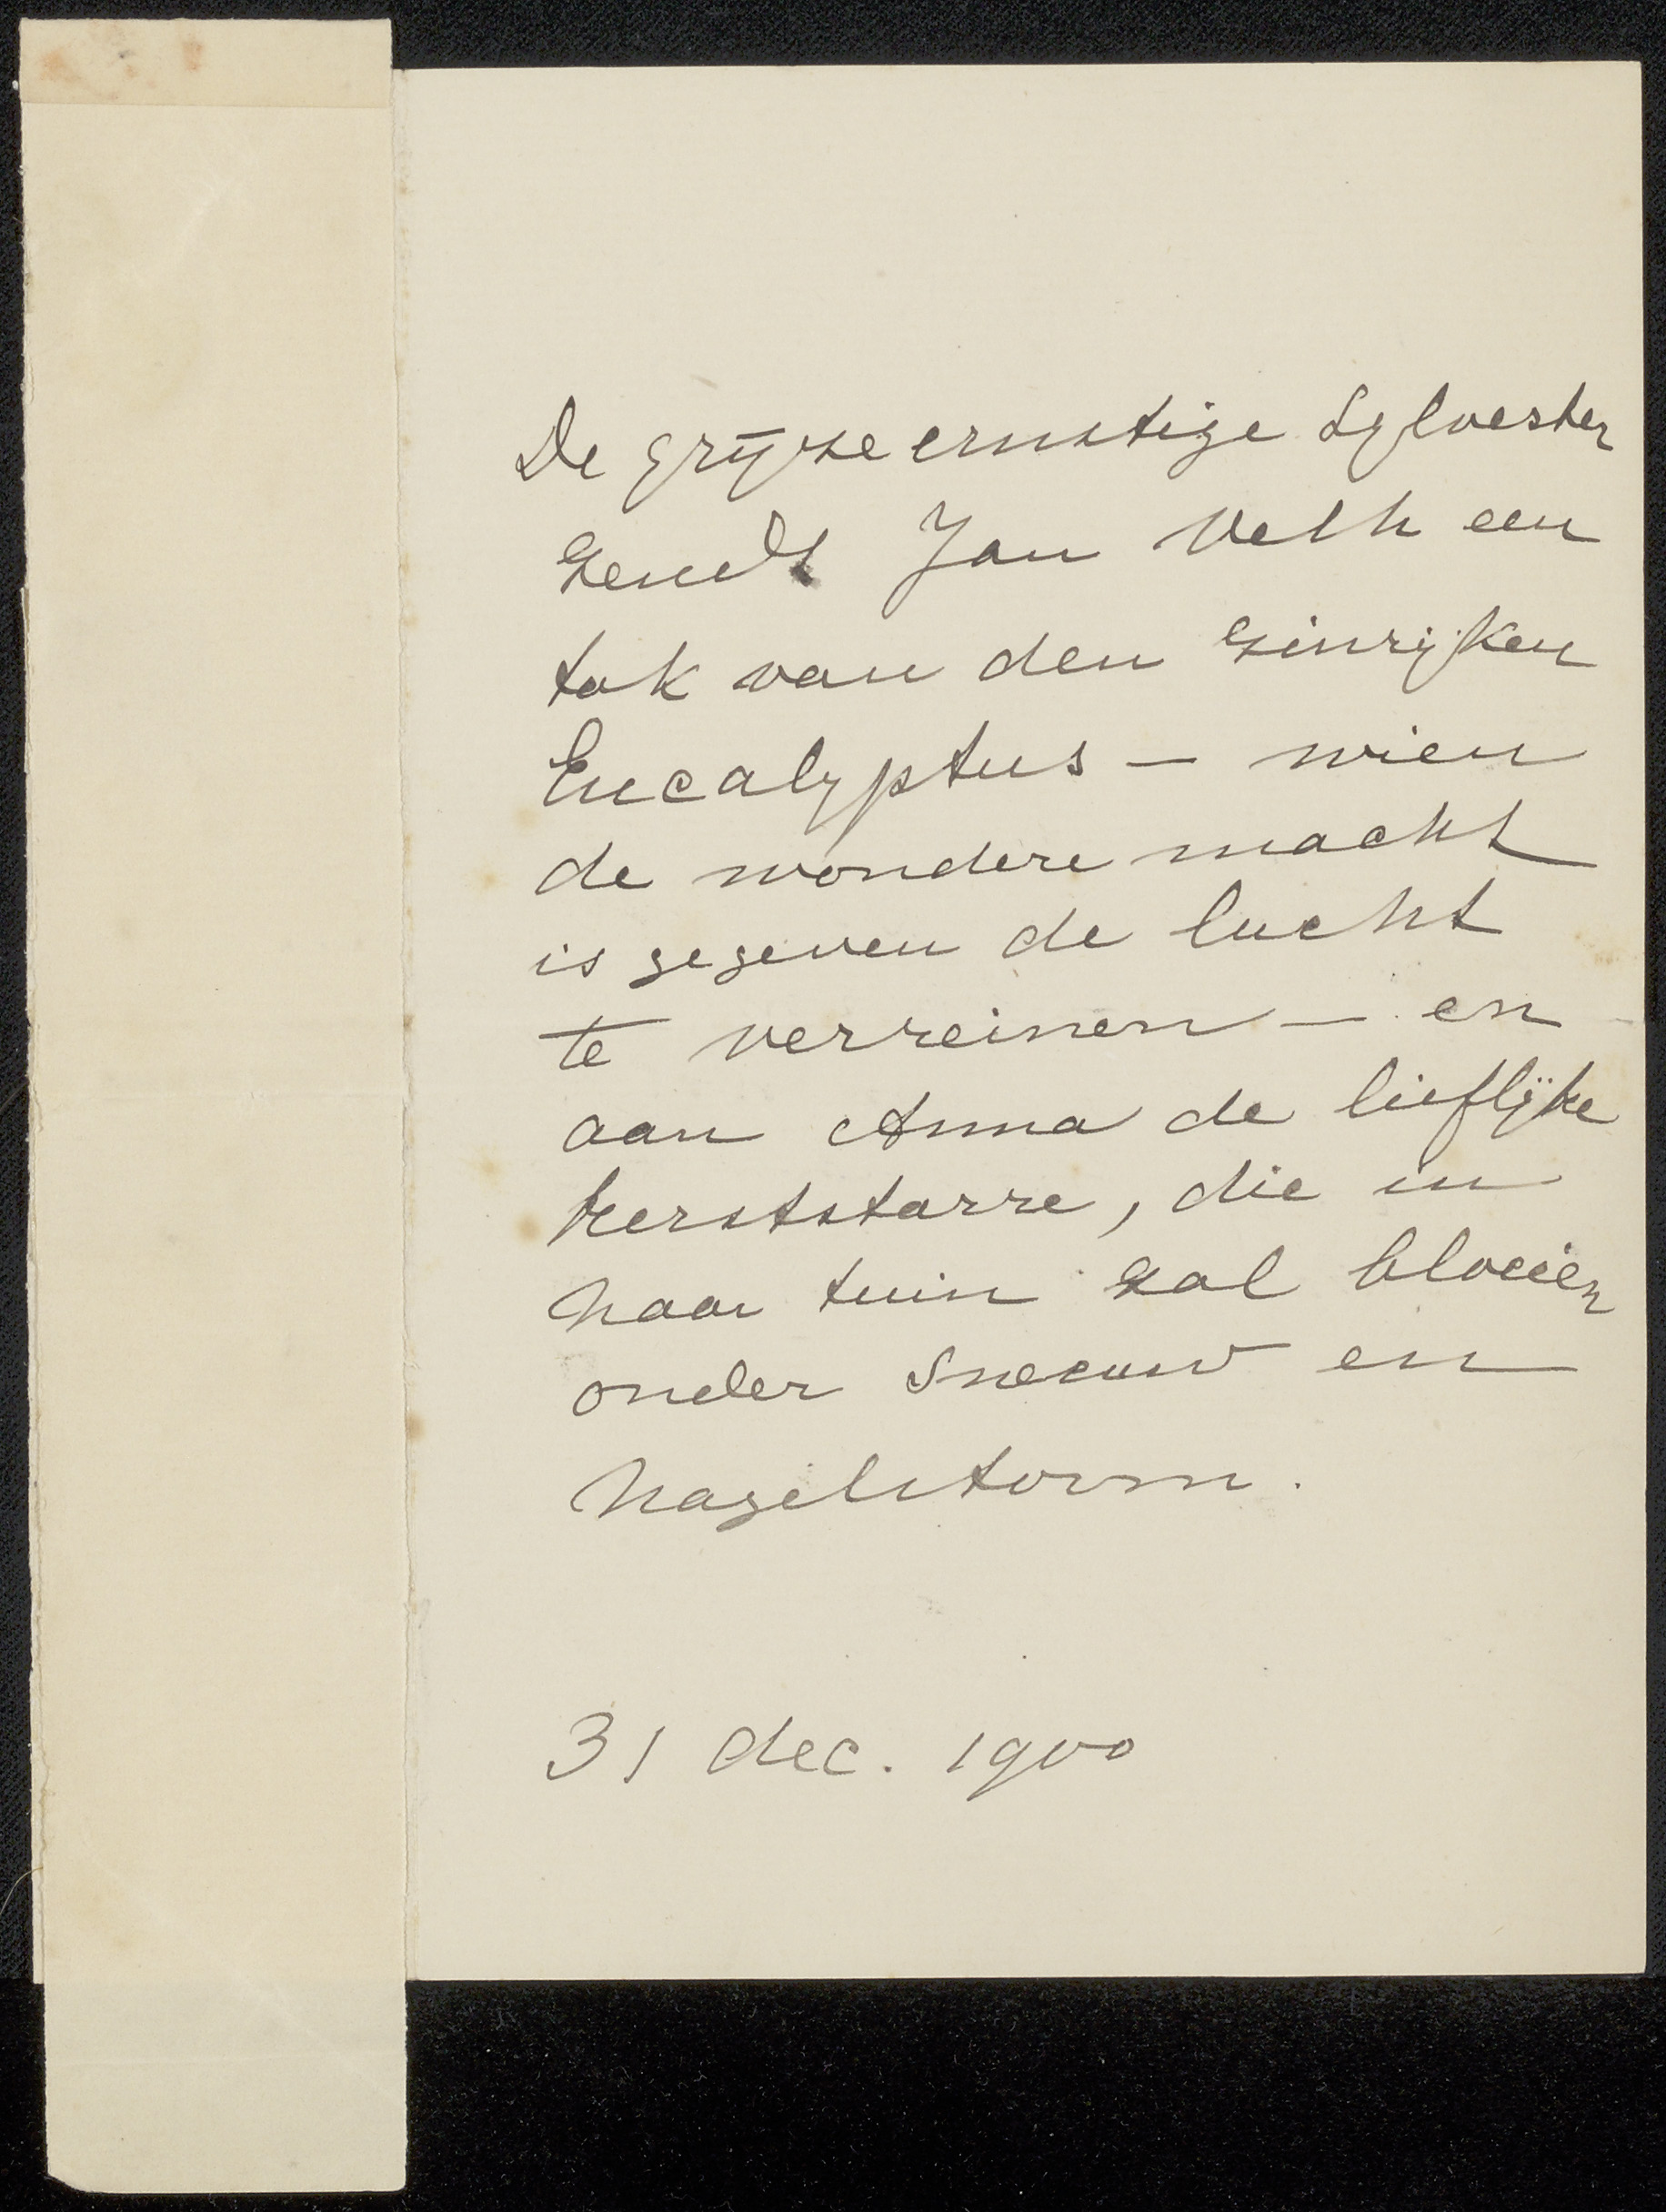 De grijze ernstige Sylvester
zendt Jan Veth een
tak van den zinrijken
Eucalyptus – wien
de wondere macht
is gegeven de lucht
te verreinen – en
aan Anna de lieflijke
kerststarre, die in
haar tuin zal bloeien
onder sneeuw en
hagelstorm.
31 dec. 1900